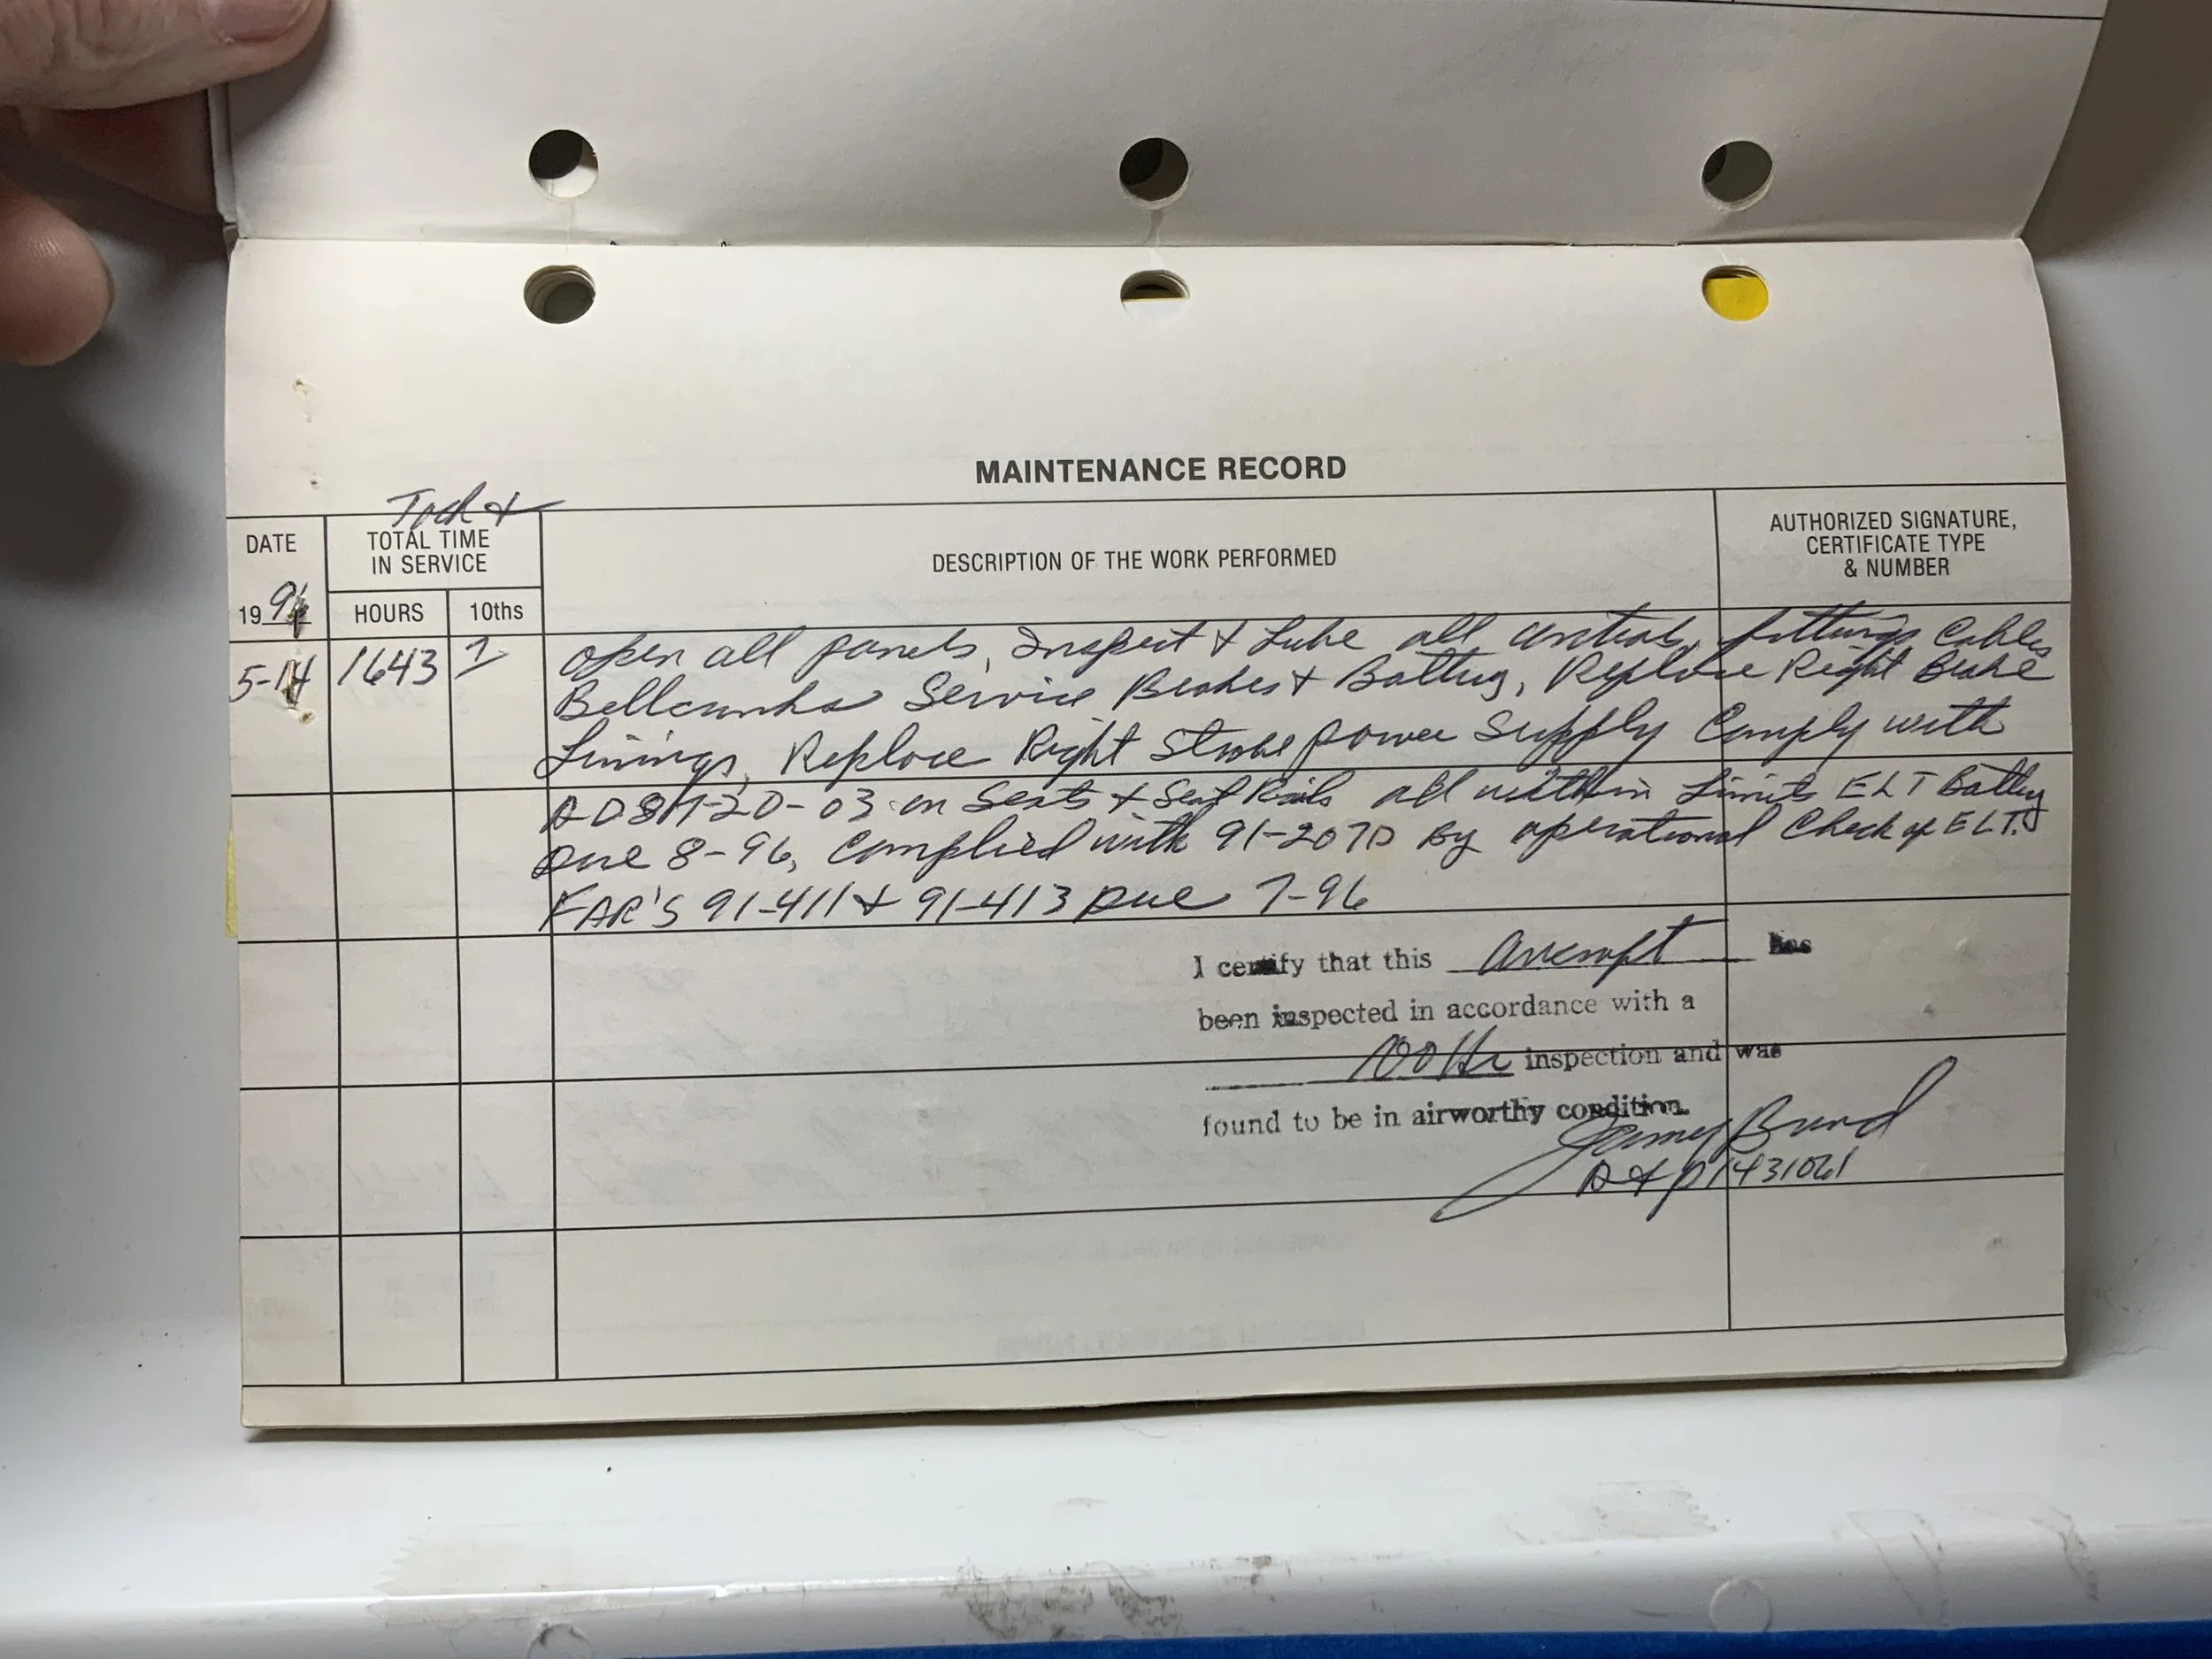 MAINTENANCE RECORD
Tach +
DATE
TOTAL TIME
IN SERVICE
DESCRIPTION OF THE WORK PERFORMED
AUTHORIZED SIGNATURE,
CERTIFICATE TYPE
& NUMBER
19 96
HOURS
10ths
5-14 1643 7 open all panels, Inspect + Lube all controls, fittings Cables
Bellcranks Service Brakes + Battery, Replace Right Brake
Linings, Replace Right Strobe power Supply Comply with
AD 87-20-03 on Seats + Seat Rails all within Limits ELT Battery
Due 8-96, Complied with 91-207D By operational Check of ELT.
FAR'S 91-411 + 91-413 Due 7-96
I certify that this Aircraft has
been inspected in accordance with a
100 Hr inspection and was
found to be in airworthy condition.
A+P 1431061